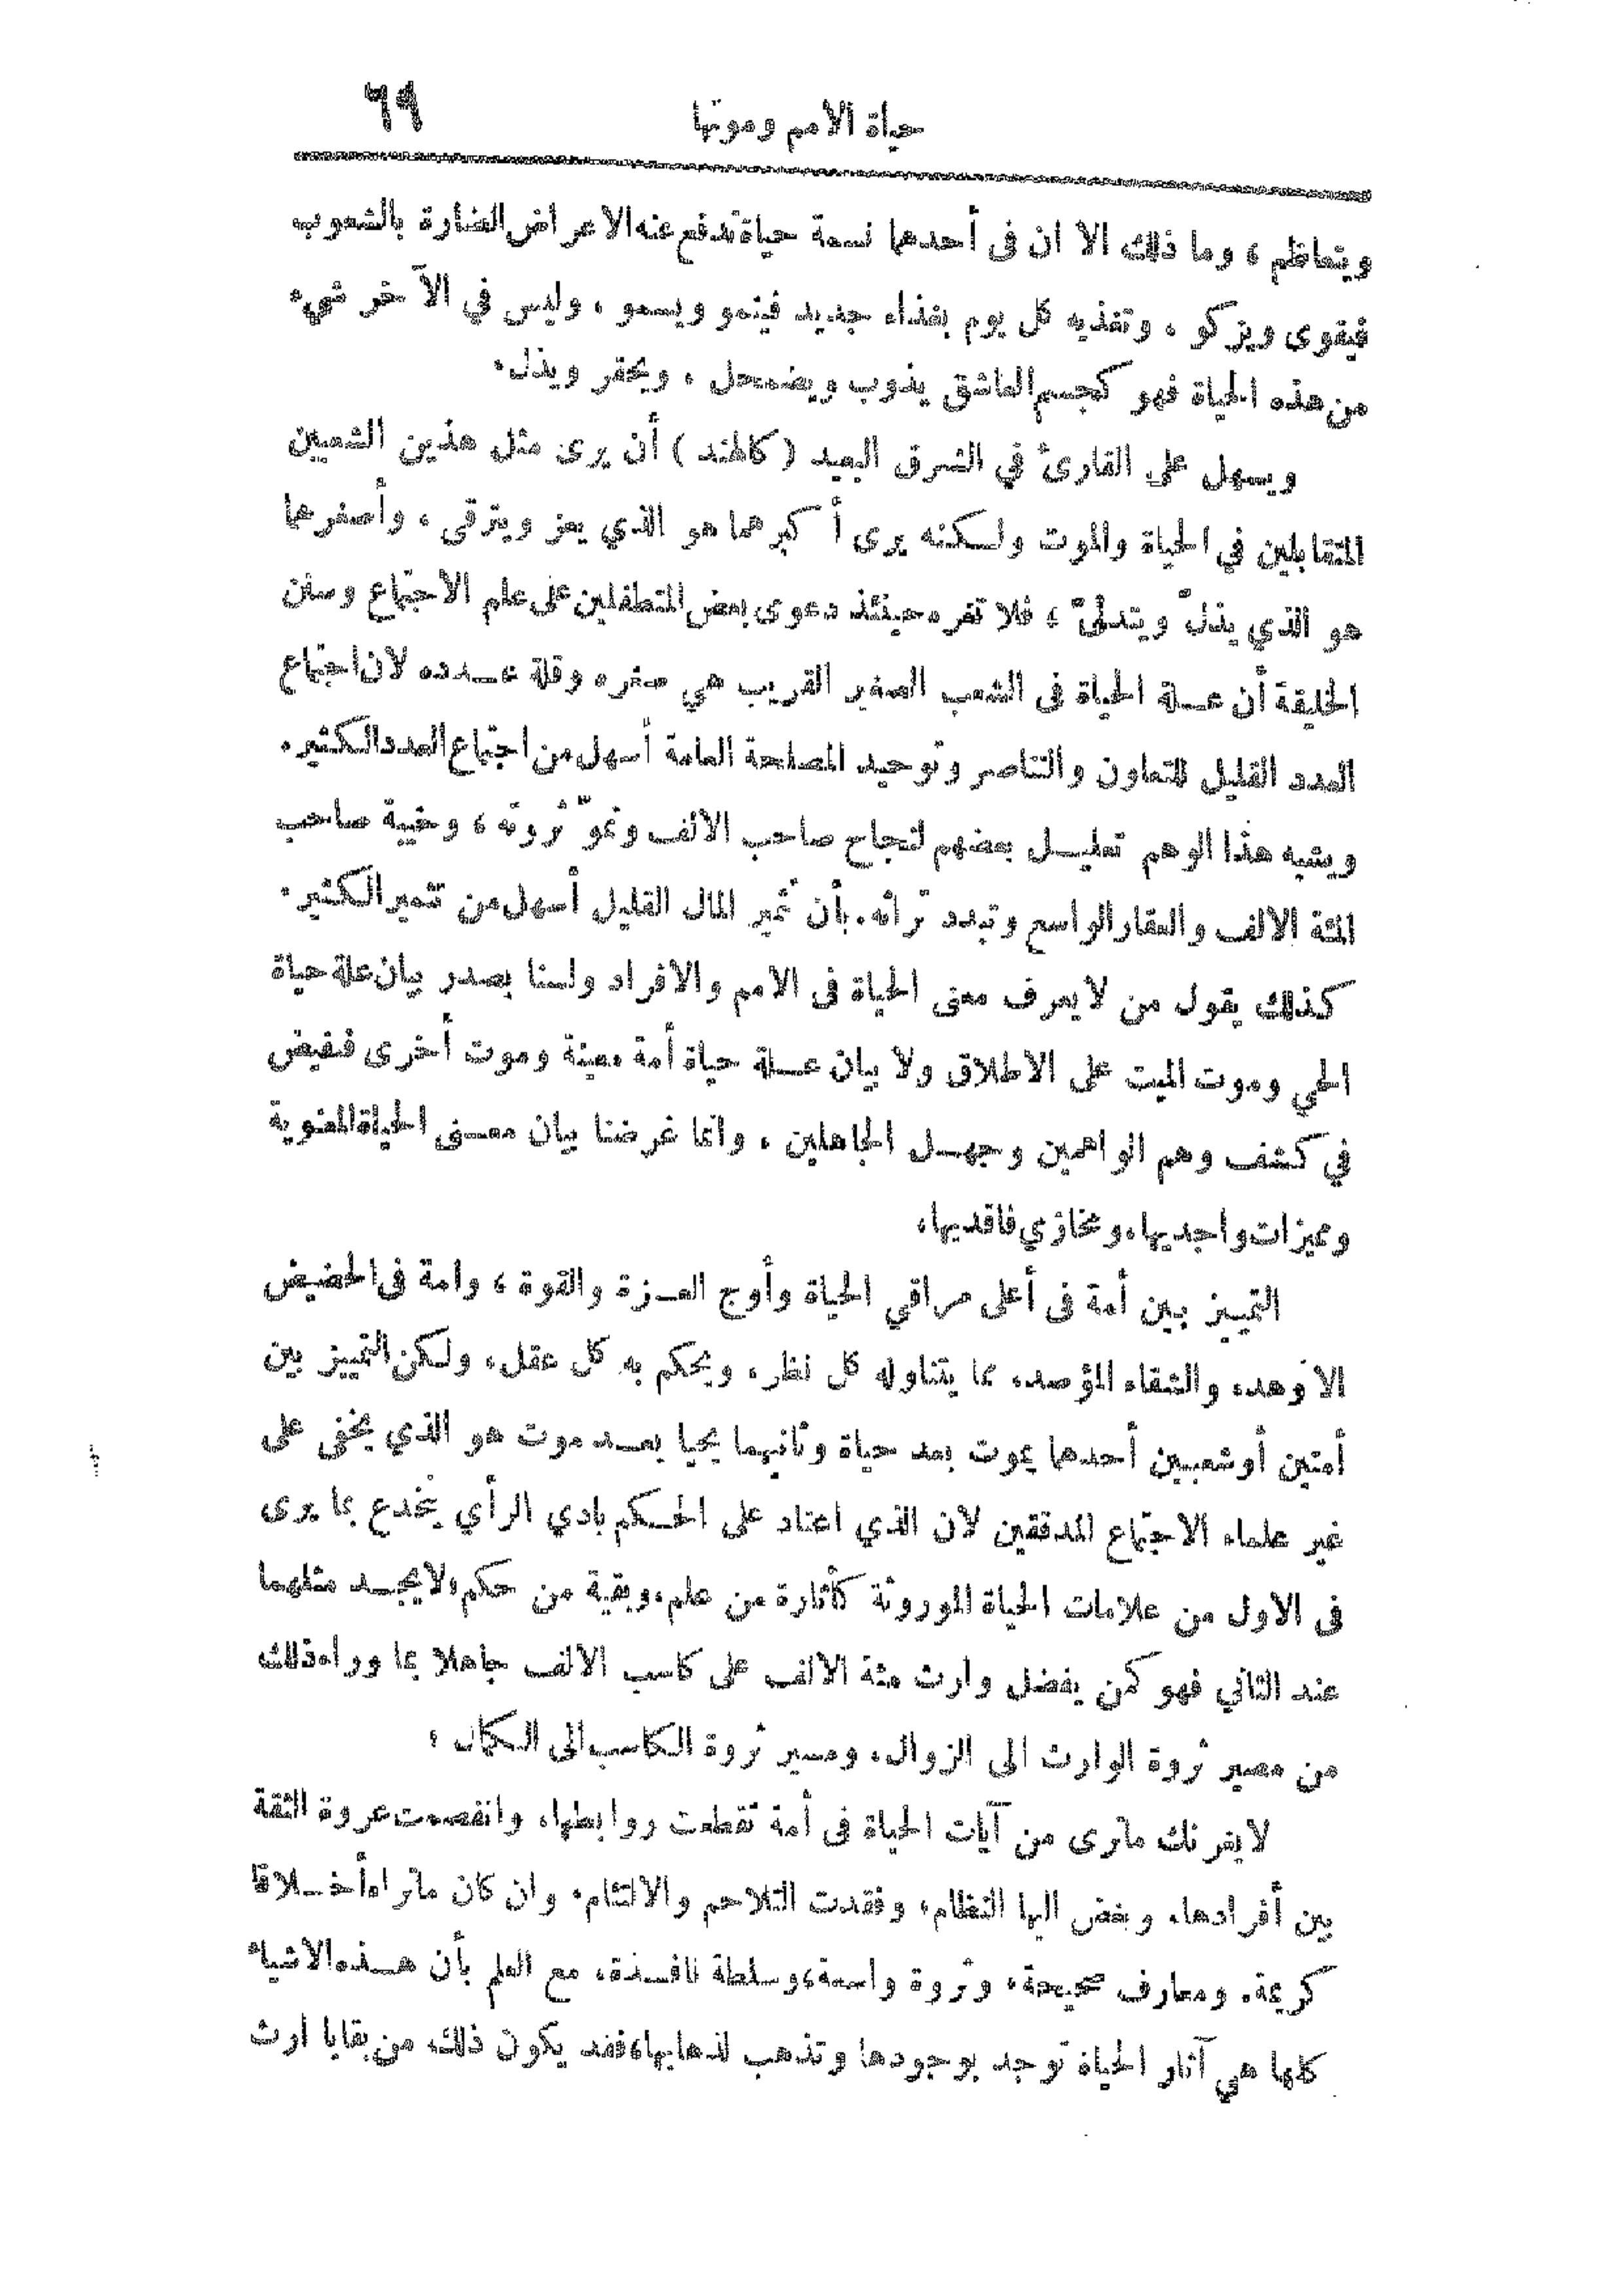 حياة الامم وموتها ٦٩
ويتعاظم ، وما ذلك الا ان فى أحدهما نسمة حياة تدفع عنه الاعراض الضارة بالشعوب
فيقوى ويزكو ، وتغذيه كل يوم بغذاء جديد فينمو ويسمو ، وليس في الآخر شيء
من هذه الحياة فهو كجسم العاشق يذوب ويضمحل ، ويحقر ويذل.
ويسهل على القارئ في الشرق البعيد (كالهند) أن يرى مثل هذين الشعبين
المتقابلين في الحياة والموت ولكنه يرى أكبرهما هو الذي يعز ويترقى ، وأصغرهما
هو الذي يذلّ ويتدلىّ ، فلا تغره حينئذ دعوى بعض المتطفلين على علم الاجتماع وسنن
الخليقة أن عـلة الحياة فى الشعب الصغير القريب هي صغره وقلة عـدده لان اجتماع
العدد القليل للتعاون والتناصر وتوحيد المصلحة العامة أسهل من اجتماع العدد الكثير.
ويشبه هذا الوهم تعليـل بعضهم لنجاح صاحب الالف ونموّ ثروته ، وخيبة صاحب
المئة الالف والعقار الواسع وتبدد تراثه. بأن تثمير المال القليل أسهل من تثمير الكثير.
كذلك يقول من لا يعرف معنى الحياة فى الامم والافراد ولسنا بصدر بيان علة حياة
الحي وموت الميت على الاطلاق ولا بيان عـلة حياة أمة معينة وموت أخرى فنفيض
في كشف وهم الواهمين وجهـل الجاهلين ، وانما غرضنا بيان معـنى الحياة المعنوية
ومميزات واجديها، ومخازي فاقديها،
التميـيز بـين أمة فى أعلى مراقي الحياة وأوج العـزة والقوة ، وامة فى الحضيض
الاوهد، والشقاء المؤصد، مما يتناوله كل نظر، ويحكم به كل عقل، ولكن التمييز بين
أمتين أو شعبـين أحدهما يموت بعد حياة وثانيهما يحيا بعـد موت هو الذي يخفى على
غير علماء الاجتماع المدققين لان الذي اعتاد على الحـكم بادي الرأي يُخدع بما يرى
فى الاول من علامات الحياة الموروثة كأثارة من علم، وبقية من حكم، لا يجـد مثلهما
عند الثاني فهو كمن يفضل وارث مئة الالف على كاسب الالف جاهلا بما وراء ذلك
من مصير ثروة الوارث الى الزوال، ومسير ثروة الكاسب الى الـكمال ،
لا يغرنك ماترى من آيات الحياة فى أمة تقطعت روابطها، وانفصمت عروة الثقة
بين أفرادها، وبغض اليها النظام، وفقدت التلاحم والالتئام. وان كان ماتراه أخـلاقا
كريمة، ومعارف صحيحة، وثروة واسعة، وسلطة نافـذة، مع العلم بأن هـذه الاشياء
كلها هي آثار الحياة توجد بوجودها وتذهب لذهابها، فقد يكون ذلك من بقايا ارث